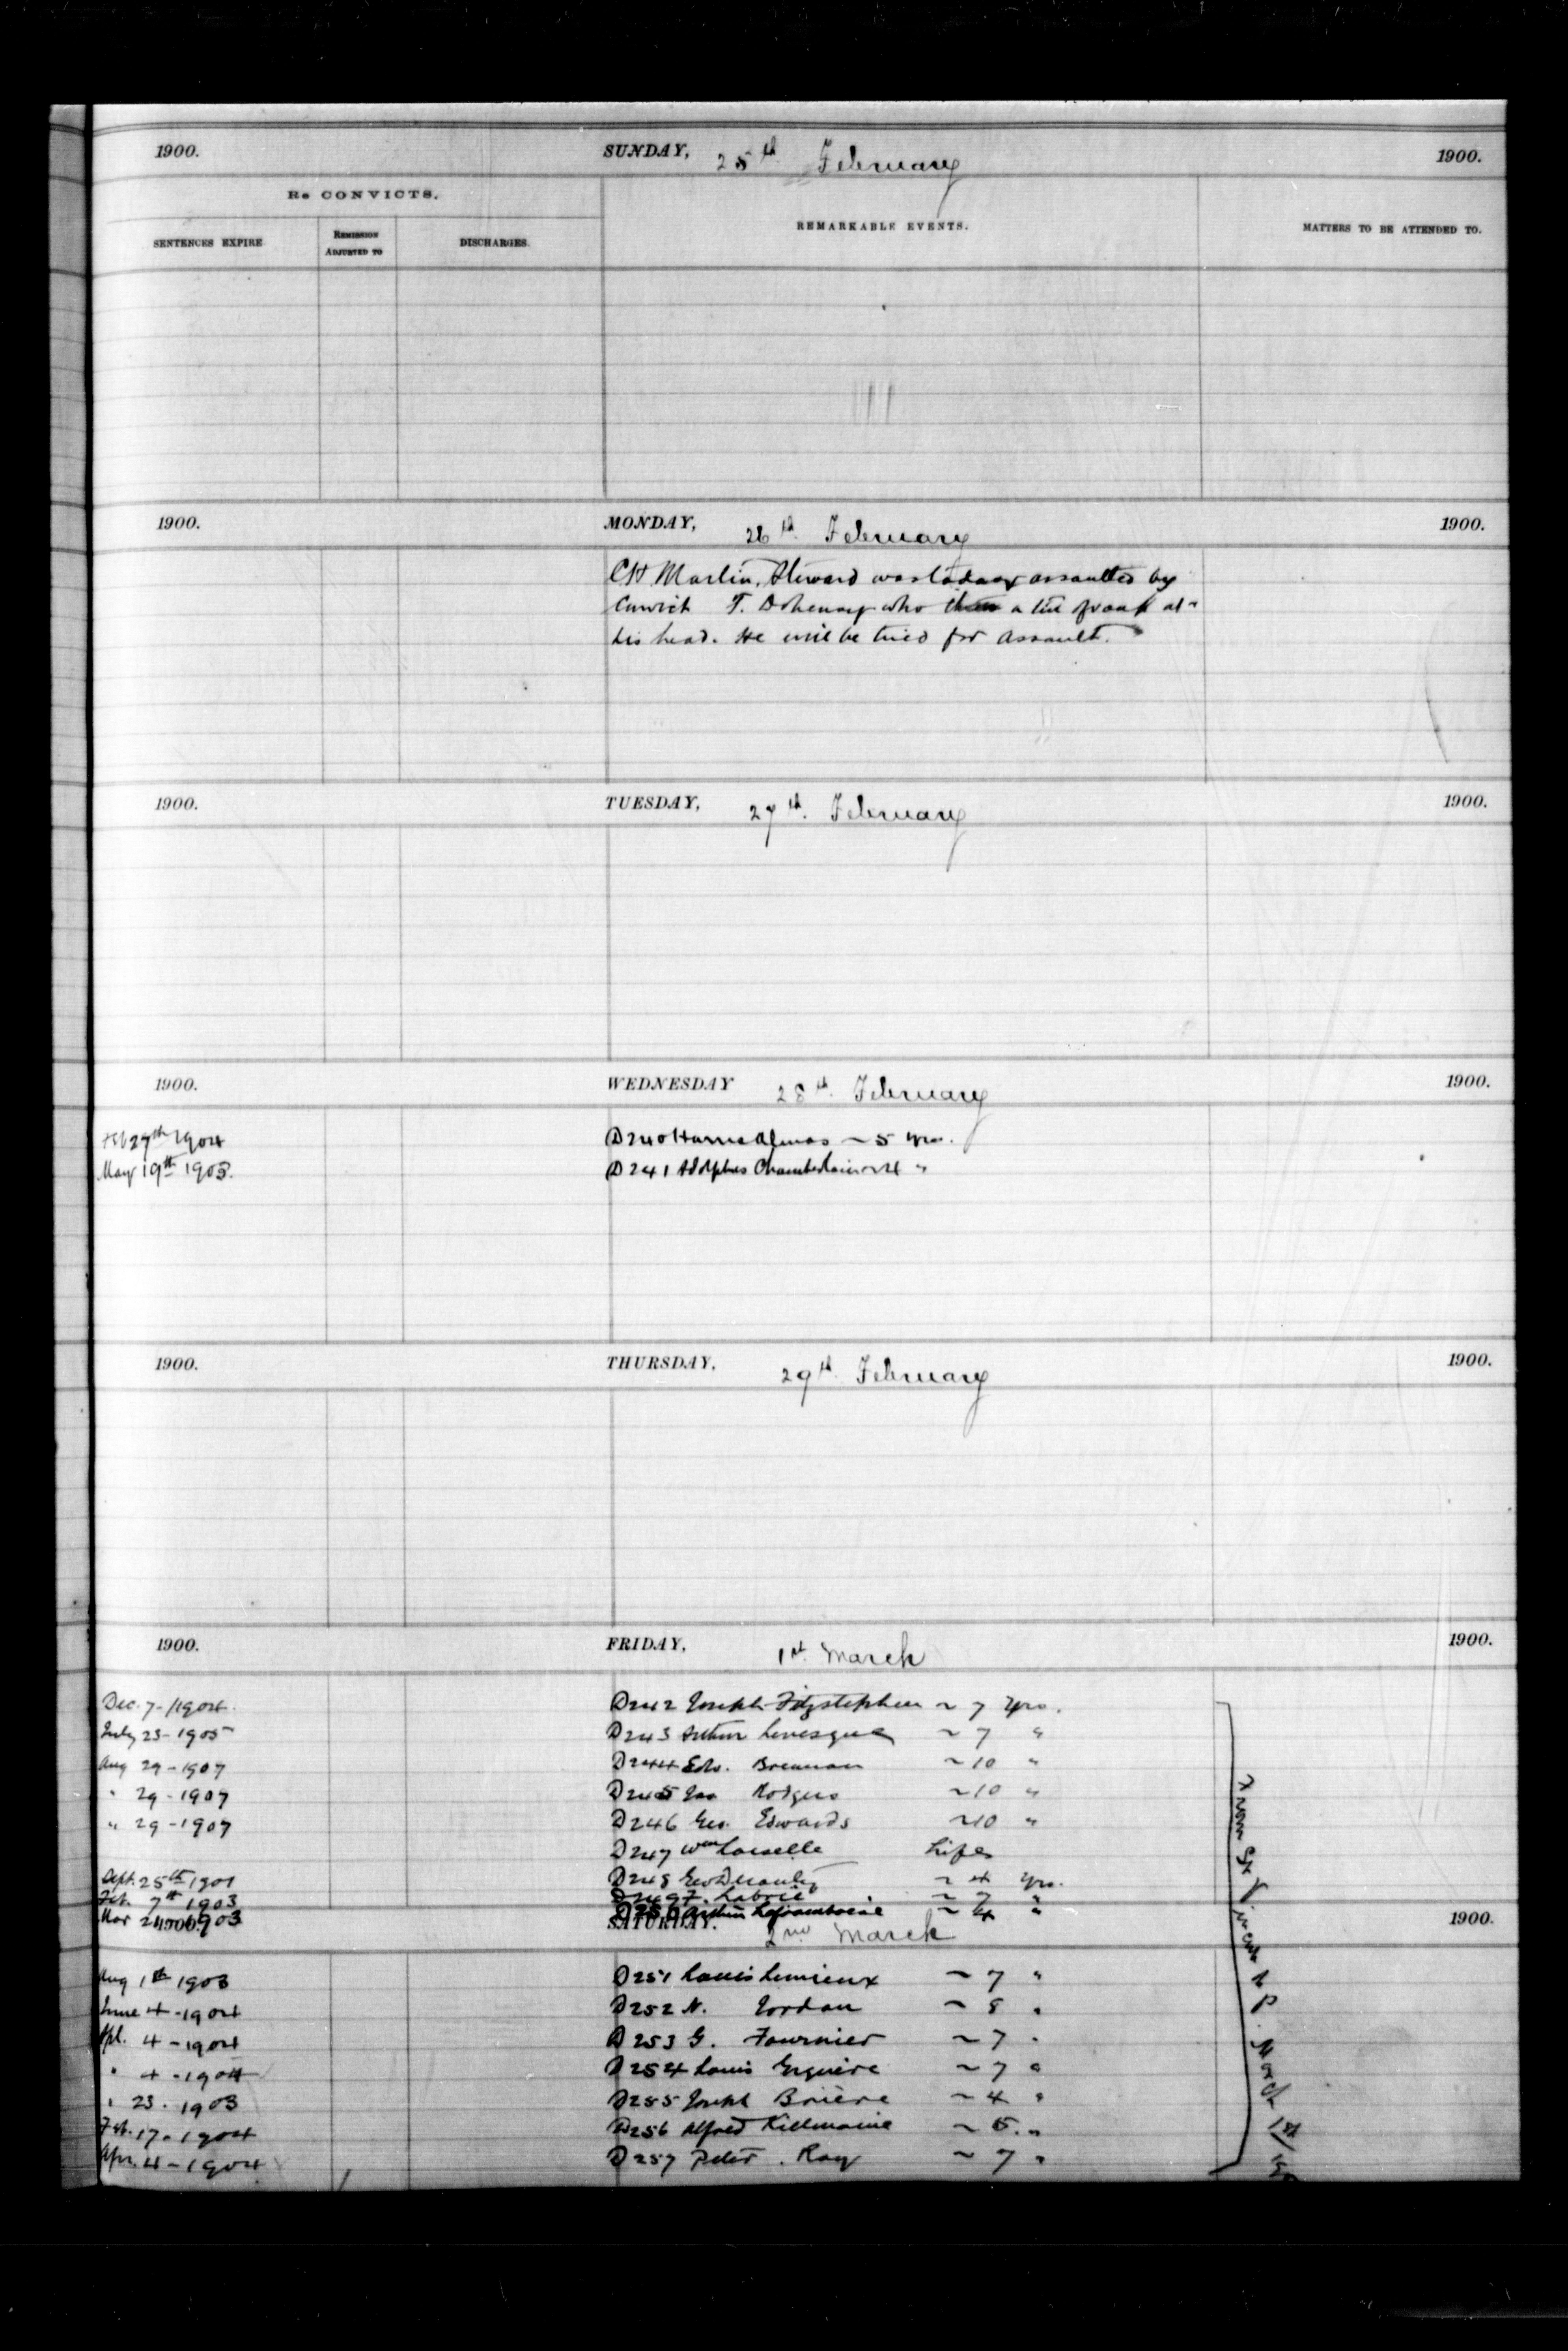 1900. SUNDAY, 25th February 1900.
Re CONVICTS.
SENTENCES EXPIRE REMISSION ADJUSTED TO DISCHARGES. REMARKABLE EVENTS. MATTERS TO BE ATTENDED TO.
1900. MONDAY, 26th February 1900.
CH Martin, Steward was today assaulted by
Convict T. Doheney who threw a tin at
his head. He will be tried for assault.
1900. TUESDAY, 27th February 1900.
1900. WEDNESDAY 28th February 1900.
Feb 27th 1904 D240 ~ 5 yrs.
May 19th 1903. D241 Adolphus Chamberlain ~ 4 "
1900. THURSDAY, 29th February 1900.
1900. FRIDAY, 1st March 1900.
Dec. 7 - 1904. D242 Joseph Fitzstephen ~ 7 yrs.
July 23 - 1905 D243 Arthur Levesque ~ 7 "
Aug 29 - 1907 D244 Edw. Brennan ~ 10 "
" 29 - 1907 D245 Jas Rodgers ~ 10 "
" 29 - 1907 D246 Geo. Edwards ~ 10 "
D247 Wm Loiselle Life
Sept. 25th 1901 D248 Geo ~ 4 yrs.
Feb. 7th 1903 D249 F. Labrie ~ 7 "
Mar 24 1903 D250 Arthur Laframboise ~ 4 "
1900. SATURDAY. 2nd March 1900.
Aug 1st 1903 D251 Louis Lemieux ~ 7 "
June 4 - 1904 D252 N. Jordan ~ 8 "
Apl. 4 - 1904 D253 G. Fournier ~ 7 "
" 4 - 1904 D254 Louis ~ 7 "
" 23. 1903 D255 Joseph Brière ~ 4 "
Feb. 17. 1904 D256 Alfred Killmaine ~ 5. "
Apr. 4 - 1904 D257 Peter Roy ~ 7 "
From St Vincent de P. March 1st